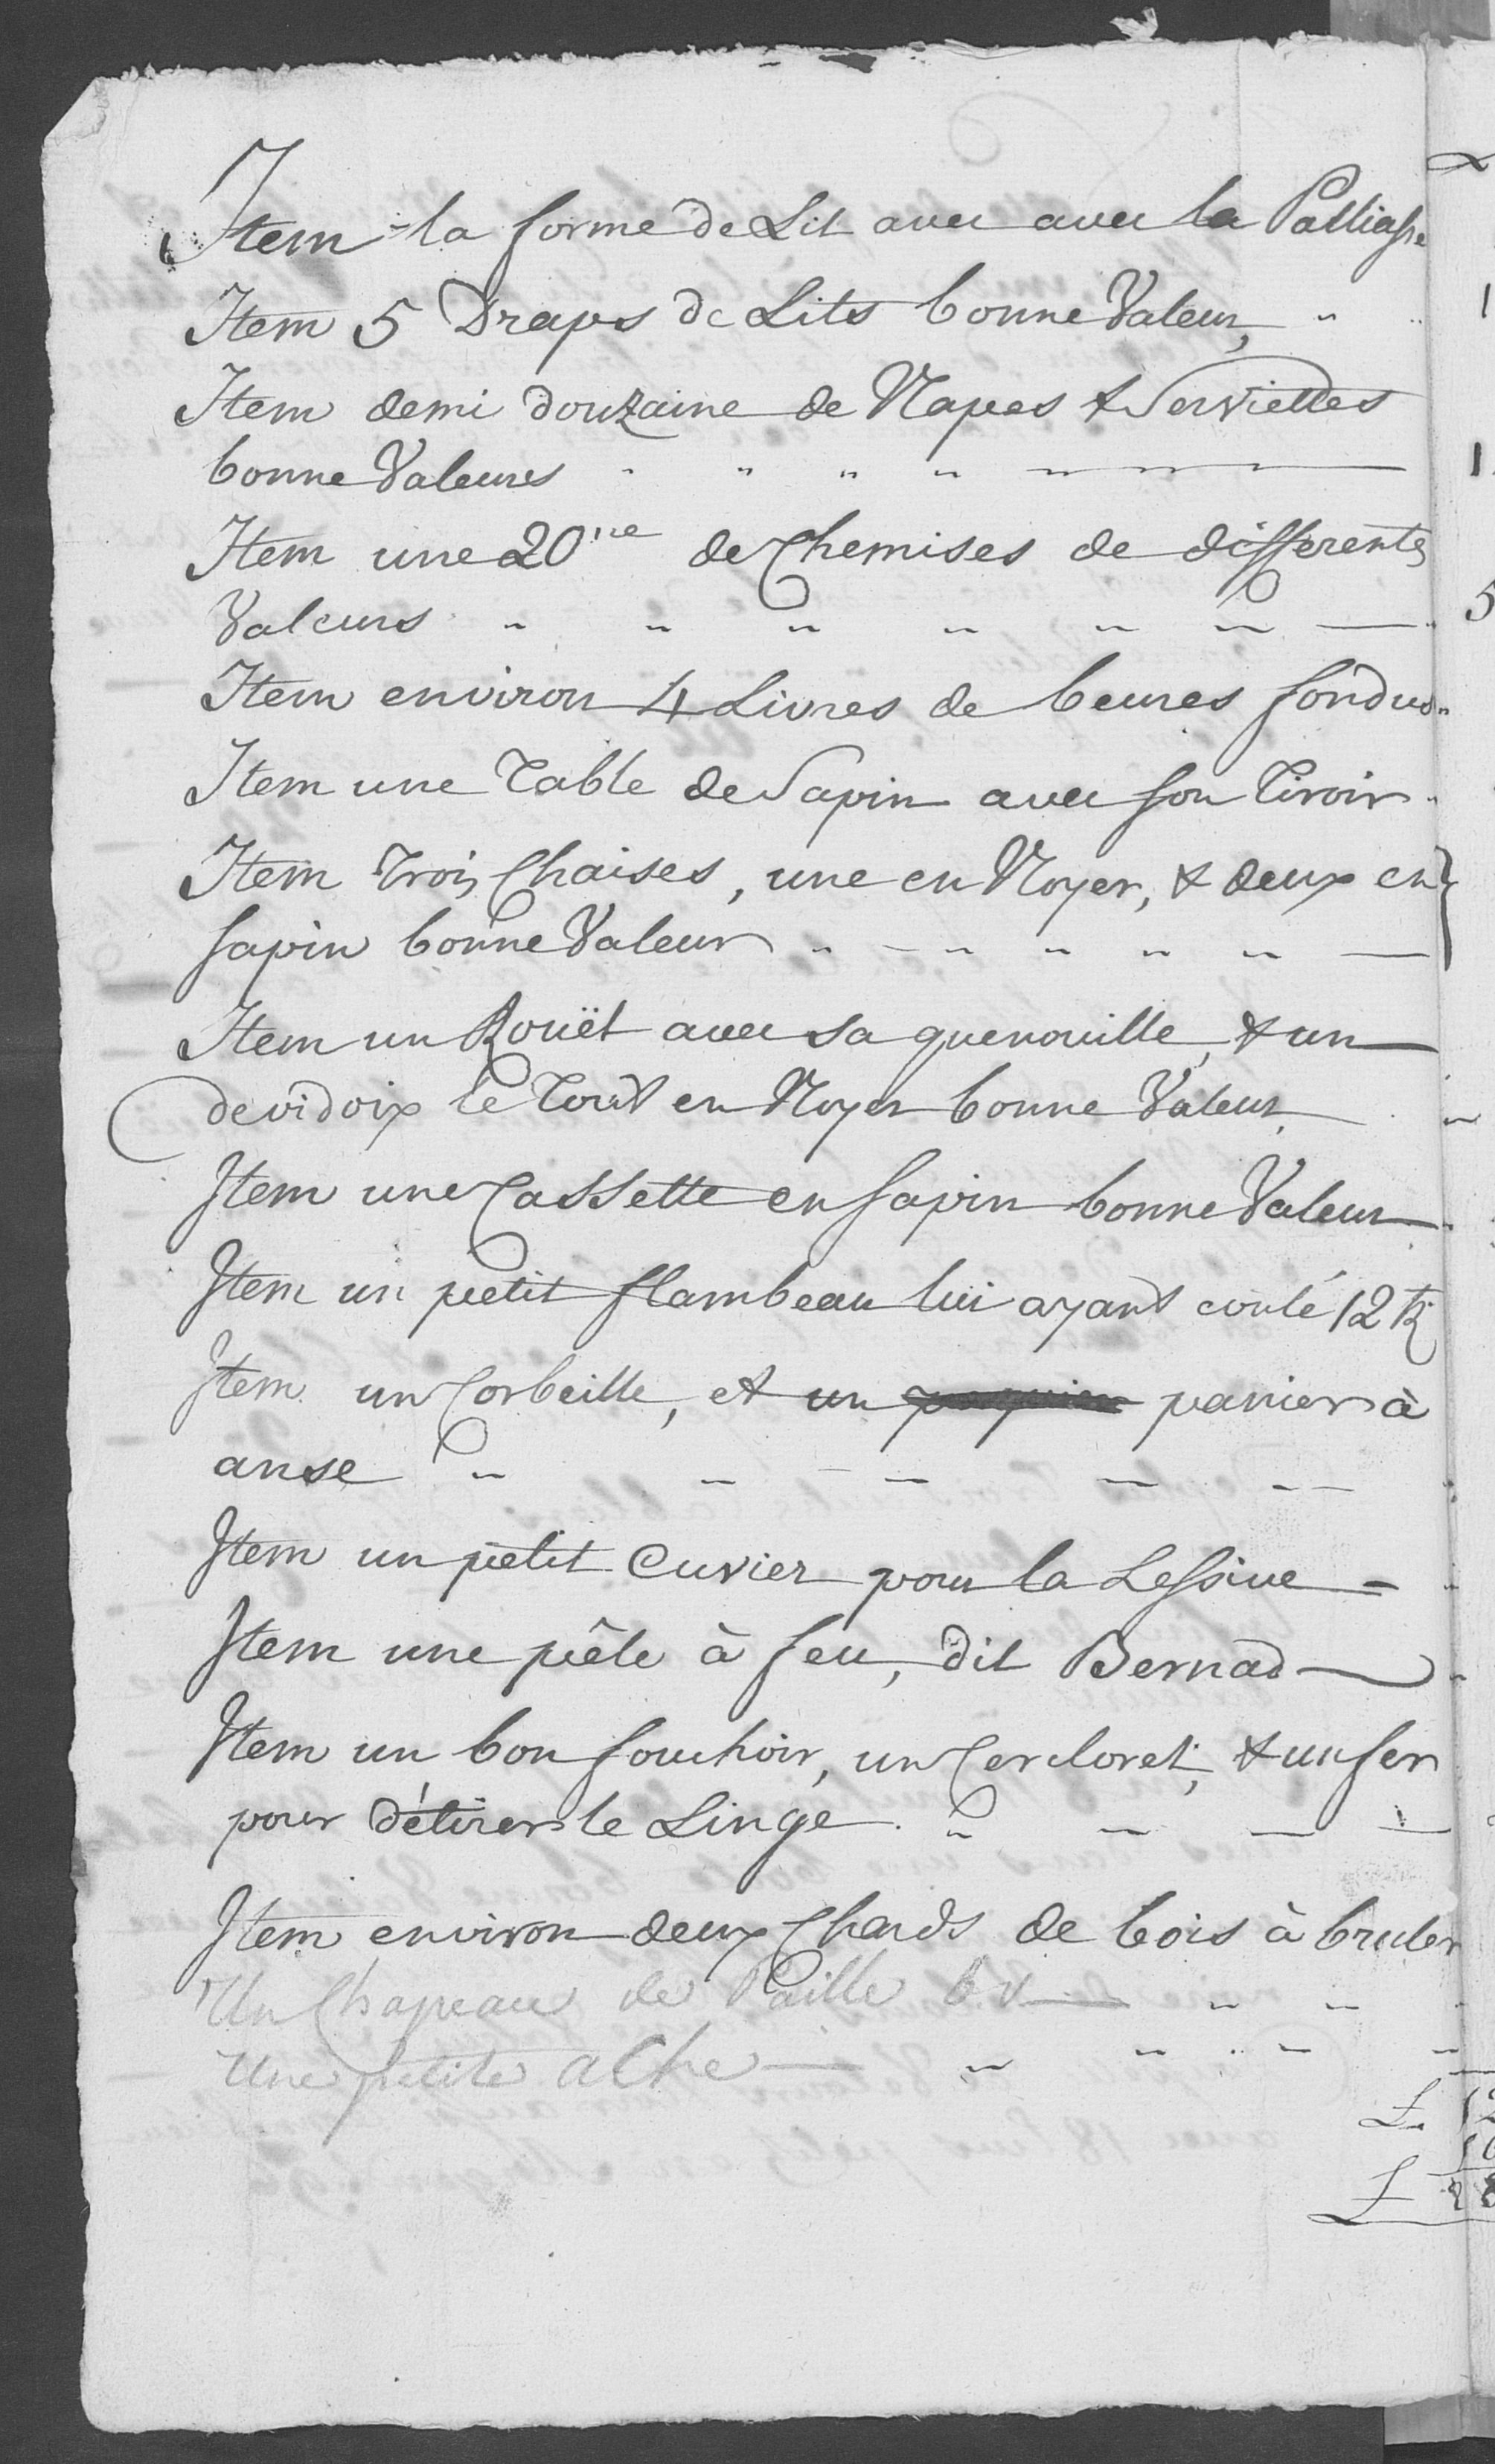 Item la forme de Lit avec avec la Palliasse
Item 5 Draps de Lits bonne Valeur, "
Item demi douzaine de Napes & Serviettes
bonne Valeures " " " " " " "
Item une 20ne de Chemises de differentes
Valeurs " " " " " "
Item environ 4 Livres de beures fondus
Item une Table de Sapin avec son Tiroir
Item Trois Chaises, une en Noyer, & deux en
sapin bonne Valeur " " " " "
Item un Rouët avec sa quenouille, & un
devidoix le Tout en Noyer bonne Valeur
Item une Cassette en sapin bonne Valeur
Item un petit flambeau lui ayant couté 12
Item un Corbeille, et un panier à
anse " " " " "
Item un petit Cuvier pour la Lessive
Item une pêle à feu, dit Bernad
Item un bon un & un fer
pour détirer le Linge "
Item environ deux Chards de bois à bruler
Un Chapeau de Paille b v " "
Une petite aChe " " " "
£ 12
£